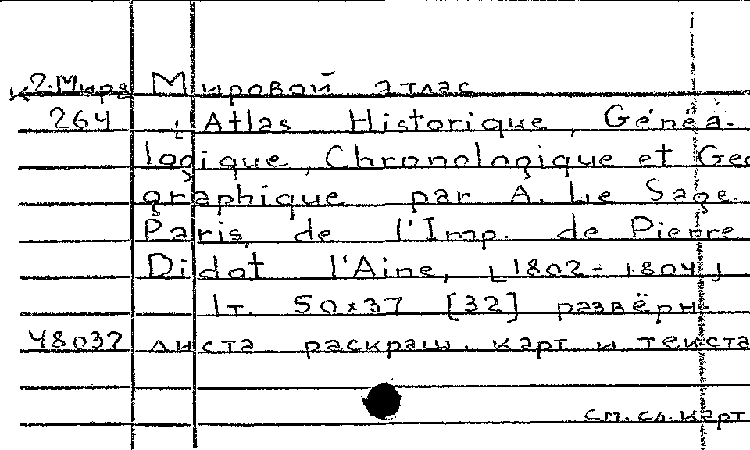 к2.Мира Мировой атлас
264 [Atlas Historique, Généá-
logique, Chronologique et Geo
graphique par A. Le Sage.
Paris, de l'Imp. de Pierre
Didot l'Aine, [1802-1804]
1т. 50x37 [32] развёрн
48037 листа раскраш. карт и текста
см. сл. карт